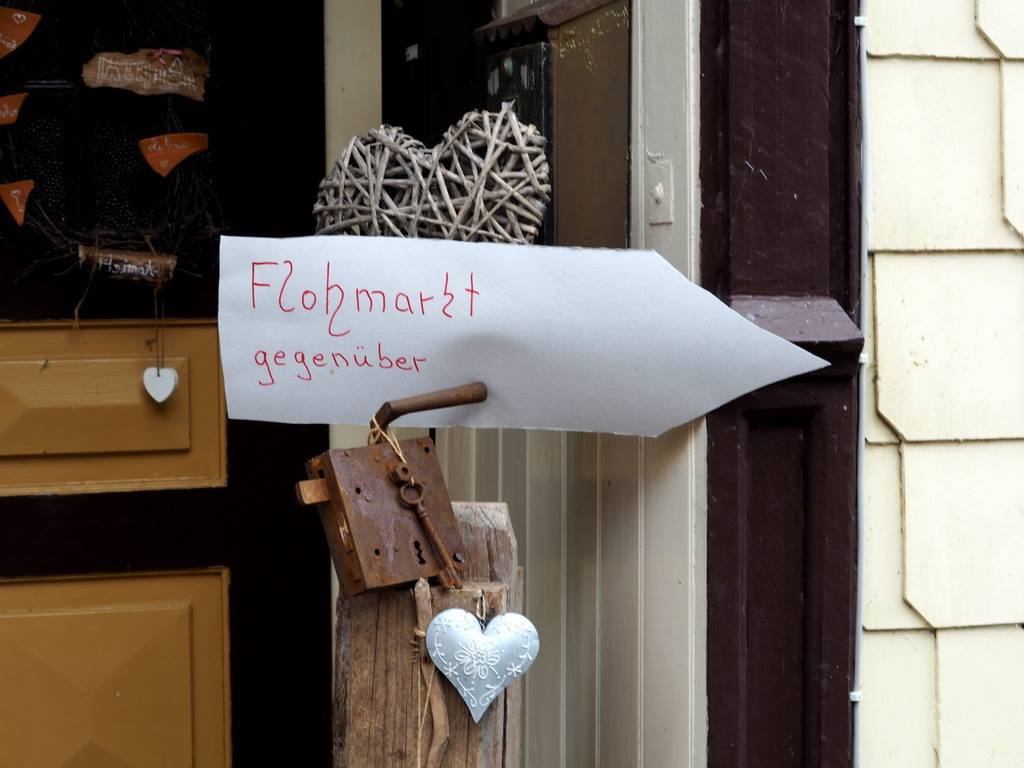 Heimat
Flohmarkt
gegenüber